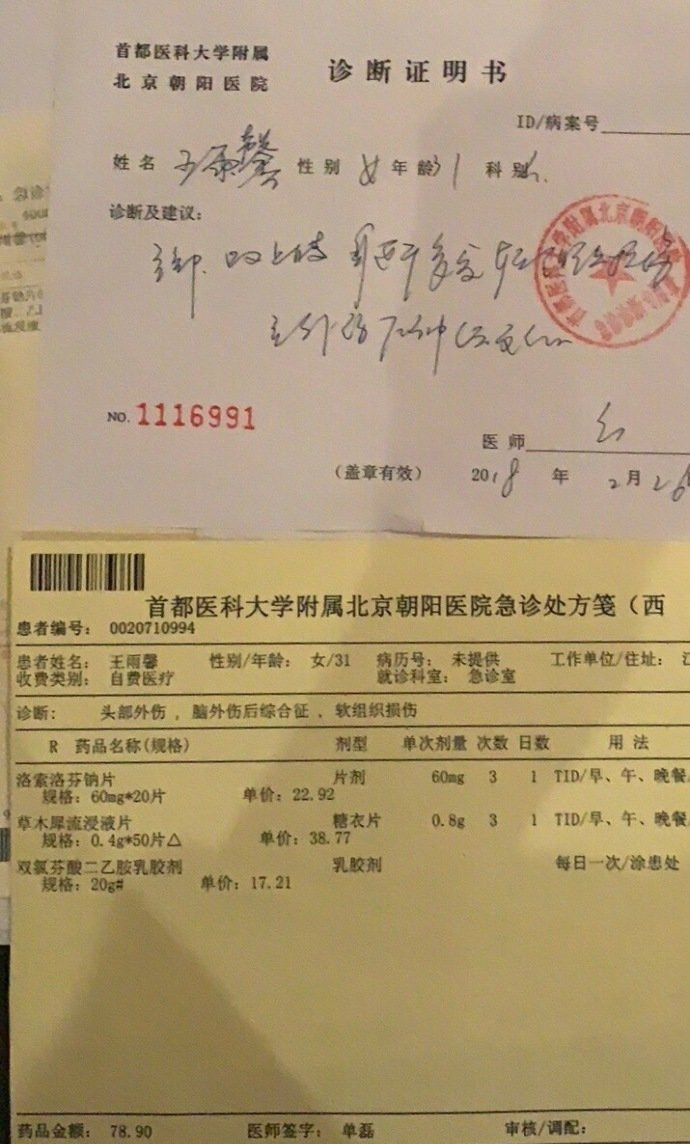 首都医科大学附属
北京朝阳医院
诊断证明书
ID/病案号
姓名 王雨馨 性别 女 年龄 31 科别
诊断及建议：
头部、 多发软组织损伤
脑外伤后神经反应
NO. 1116991
医师
（盖章有效） 2018 年 2月 26
首都医科大学附属北京朝阳医院急诊处方笺（西
患者编号： 0020710994
患者姓名： 王雨馨 性别/年龄： 女/31 病历号： 未提供 工作单位/住址： 江
收费类别： 自费医疗 就诊科室： 急诊室
诊断： 头部外伤，脑外伤后综合征，软组织损伤
R 药品名称(规格) 剂型 单次剂量 次数 日数 用 法
洛索洛芬钠片 片剂 60mg 3 1 TID/早、午、晚餐
规格：60mg*20片 单价：22.92
草木犀流浸液片 糖衣片 0.8g 3 1 TID/早、午、晚餐
规格：0.4g*50片△ 单价：38.77
双氯芬酸二乙胺乳胶剂 乳胶剂 每日一次/涂患处
规格：20g# 单价：17.21
药品金额： 78.90 医师签字： 单磊 审核/调配：